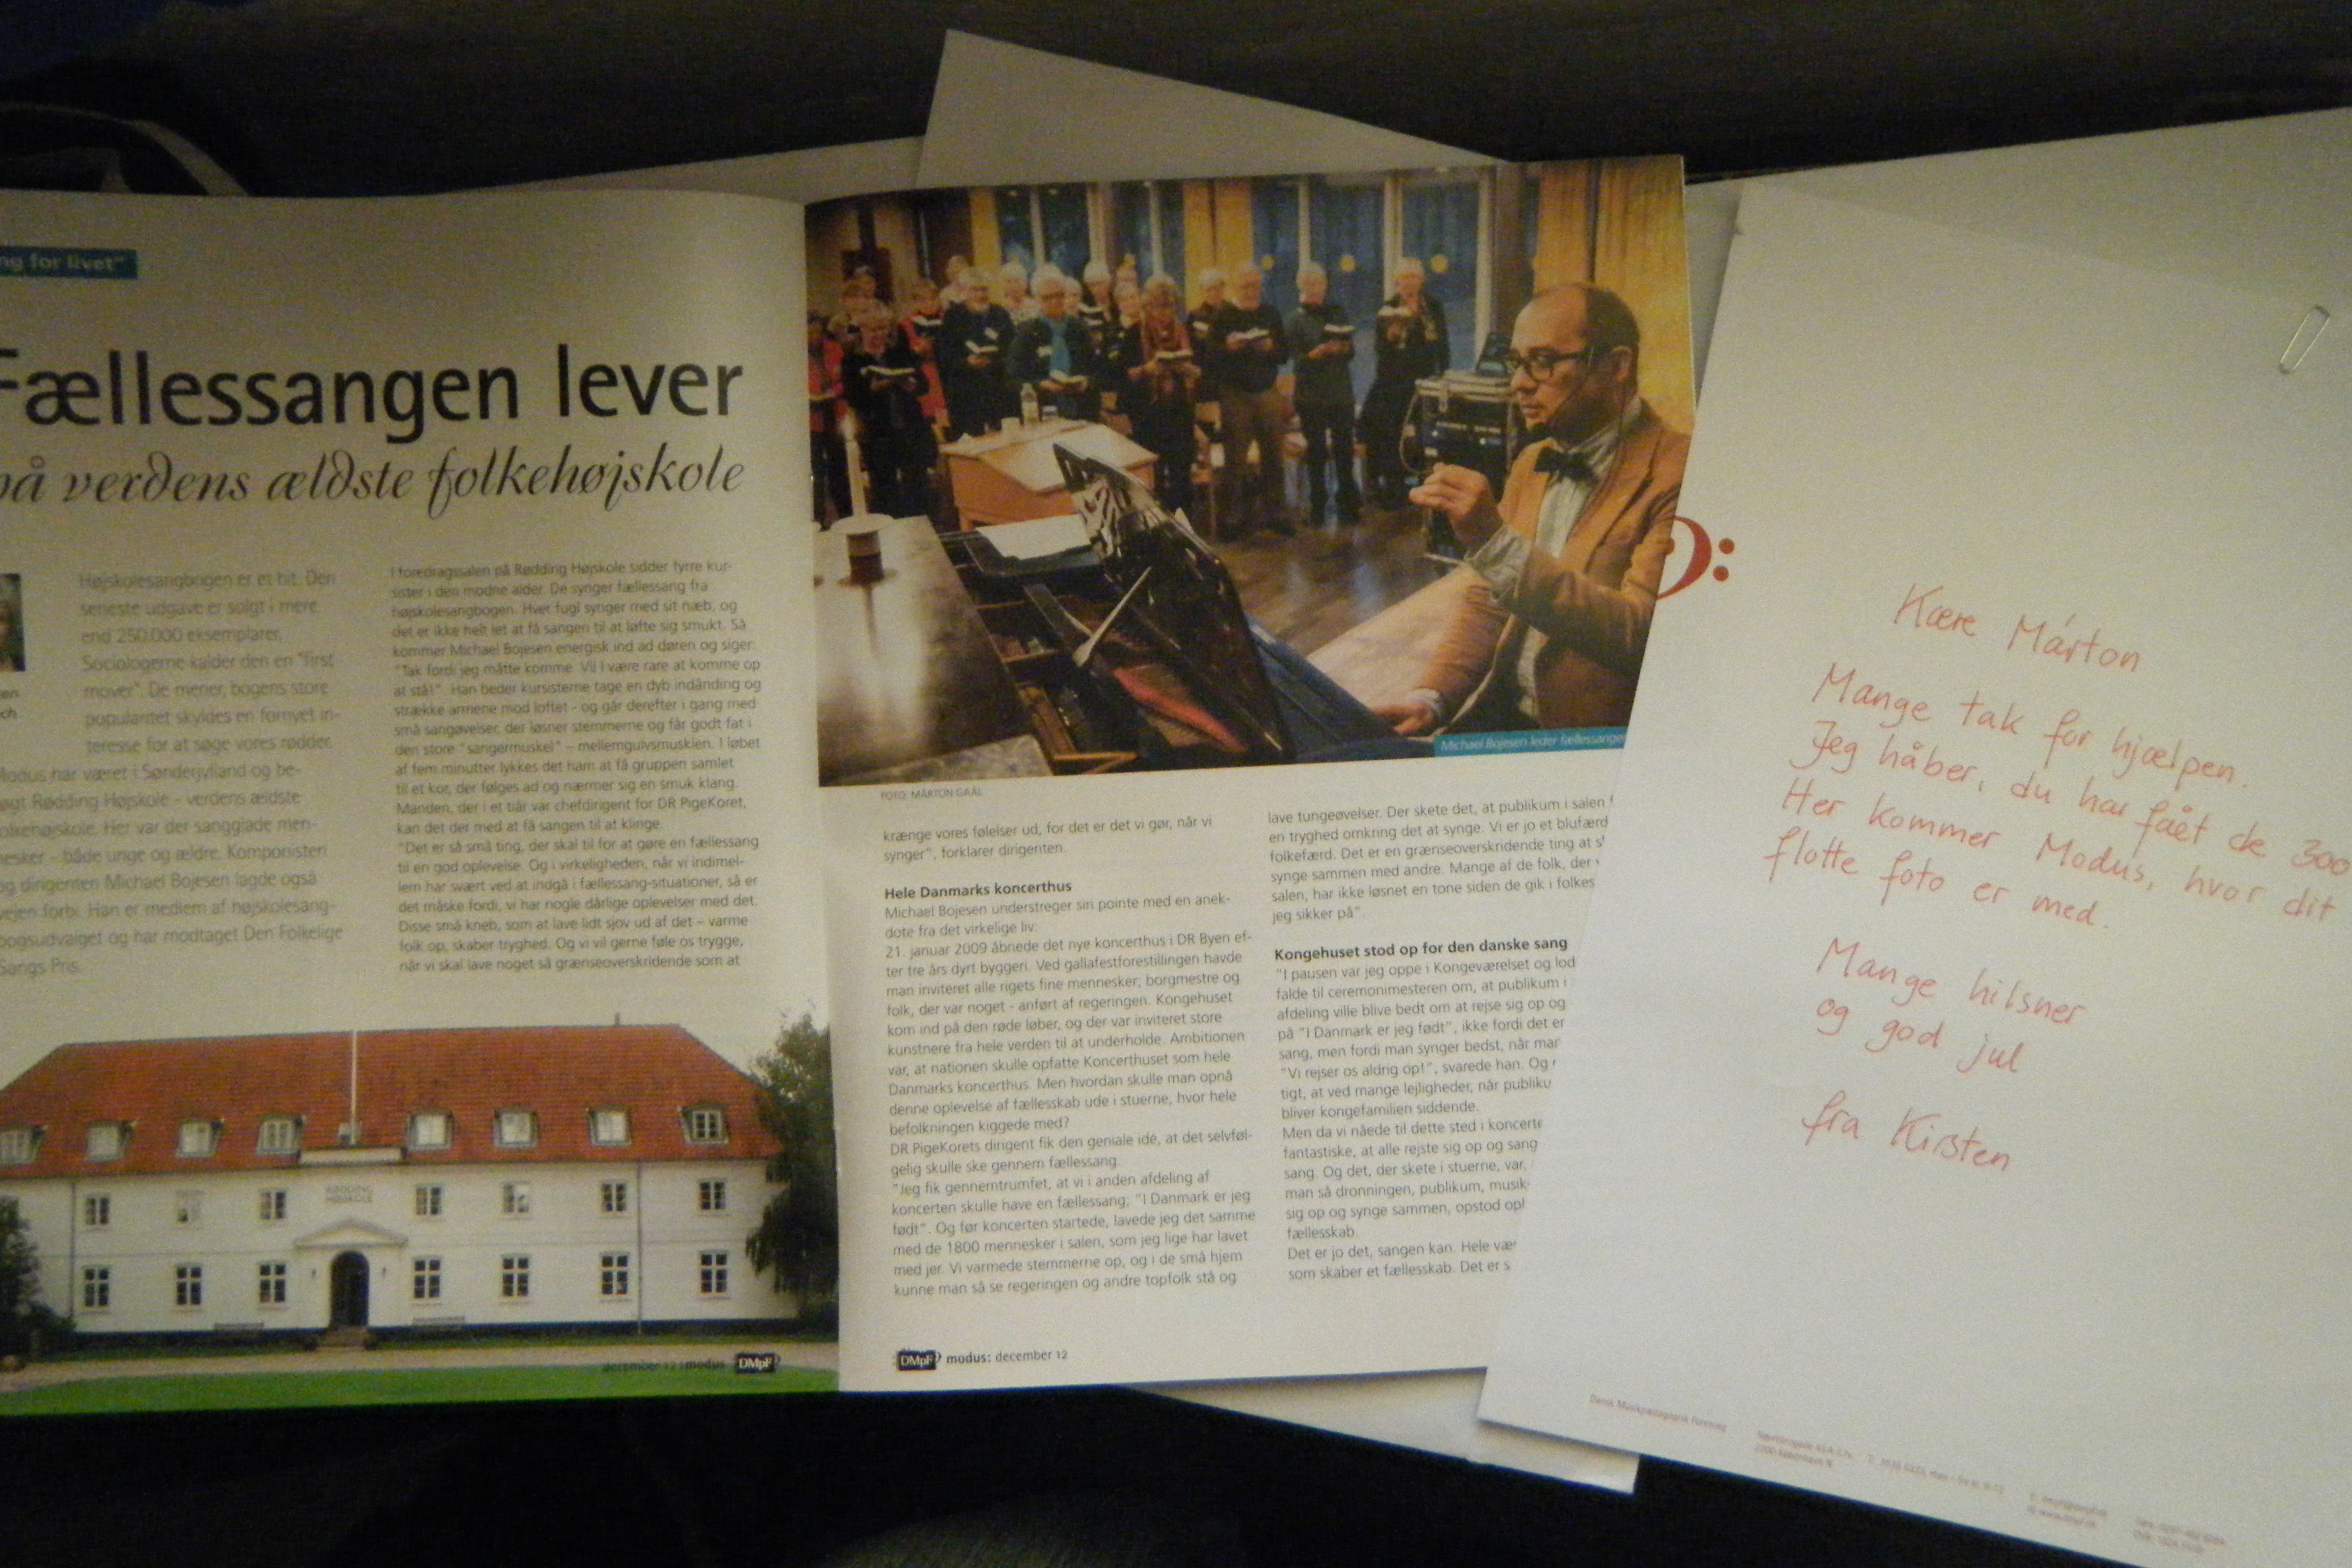 ng for livet"
Fællessangen lever
på verdens ældste folkehøjskole
en
ch
Højskolesangbogen er et hit. Den
seneste udgave er solgt i mere
end 250.000 eksemplarer.
Sociologerne kalder den en "first
mover". De mener, bogens store
popularitet skyldes en fornyet in-
teresse for at søge vores rødder.
Modus har været i Sønderjylland og be-
søgt Rødding Højskole - verdens ældste
folkehøjskole. Her var der sangglade men-
nesker - både unge og ældre. Komponisten
og dirigenten Michael Bojesen lagde også
vejen forbi. Han er medlem af højskolesang-
bogsudvalget og har modtaget Den Folkelige
Sangs Pris.
I foredragssalen på Rødding Højskole sidder fyrre kur-
sister i den modne alder. De synger fællessang fra
højskolesangbogen. Hver fugl synger med sit næb, og
det er ikke helt let at få sangen til at løfte sig smukt. Så
kommer Michael Bojesen energisk ind ad døren og siger:
"Tak fordi jeg måtte komme. Vil I være rare at komme op
at stå!". Han beder kursisterne tage en dyb indånding og
strække armene mod loftet - og går derefter i gang med
små sangøvelser, der løsner stemmerne og får godt fat i
den store "sangermuskel" – mellemgulvsmusklen. I løbet
af fem minutter lykkes det ham at få gruppen samlet
til et kor, der følges ad og nærmer sig en smuk klang.
Manden, der i et tiår var chefdirigent for DR PigeKoret,
kan det der med at få sangen til at klinge.
"Det er så små ting, der skal til for at gøre en fællessang
til en god oplevelse. Og i virkeligheden, når vi indimel-
lem har svært ved at indgå i fællessang-situationer, så er
det måske fordi, vi har nogle dårlige oplevelser med det.
Disse små kneb, som at lave lidt sjov ud af det – varme
folk op, skaber tryghed. Og vi vil gerne føle os trygge,
når vi skal lave noget så grænseoverskridende som at
RØDDING
HØJSKOLE
december 12 :modus DMpF
Michael Bojesen leder fællessangen
FOTO: MÁRTON GAÁL
krænge vores følelser ud, for det er det vi gør, når vi
synger", forklarer dirigenten.
Hele Danmarks koncerthus
Michael Bojesen understreger sin pointe med en anek-
dote fra det virkelige liv:
21. januar 2009 åbnede det nye koncerthus i DR Byen ef-
ter tre års dyrt byggeri. Ved gallafestforestillingen havde
man inviteret alle rigets fine mennesker, borgmestre og
folk, der var noget - anført af regeringen. Kongehuset
kom ind på den røde løber, og der var inviteret store
kunstnere fra hele verden til at underholde. Ambitionen
var, at nationen skulle opfatte Koncerthuset som hele
Danmarks koncerthus. Men hvordan skulle man opnå
denne oplevelse af fællesskab ude i stuerne, hvor hele
befolkningen kiggede med?
DR PigeKorets dirigent fik den geniale idé, at det selvføl-
gelig skulle ske gennem fællessang.
"Jeg fik gennemtrumfet, at vi i anden afdeling af
koncerten skulle have en fællessang; "I Danmark er jeg
født". Og før koncerten startede, lavede jeg det samme
med de 1800 mennesker i salen, som jeg lige har lavet
med jer. Vi varmede stemmerne op, og i de små hjem
kunne man så se regeringen og andre topfolk stå og
lave tungeøvelser. Der skete det, at publikum i salen f
en tryghed omkring det at synge. Vi er jo et blufærd
folkefærd. Det er en grænseoverskridende ting at s
synge sammen med andre. Mange af de folk, der v
salen, har ikke løsnet en tone siden de gik i folkes
jeg sikker på".
Kongehuset stod op for den danske sang
"I pausen var jeg oppe i Kongeværelset og lod
falde til ceremonimesteren om, at publikum i
afdeling ville blive bedt om at rejse sig op og
på "I Danmark er jeg født", ikke fordi det er
sang, men fordi man synger bedst, når mar
"Vi rejser os aldrig op!", svarede han. Og
tigt, at ved mange lejligheder, når publiku
bliver kongefamilien siddende.
Men da vi nåede til dette sted i koncerte
fantastiske, at alle rejste sig op og sang
sang. Og det, der skete i stuerne, var,
man så dronningen, publikum, musik-
sig op og synge sammen, opstod opl
fællesskab.
Det er jo det, sangen kan. Hele vær
som skaber et fællesskab. Det er s
DMpF modus: december 12
Kære Márton
Mange tak for hjælpen.
Jeg håber, du har fået de 300
Her kommer Modus, hvor dit
flotte foto er med.
Mange hilsner
og god jul
fra Kirsten
Dansk Musikpædagogisk Forening
2200 København N